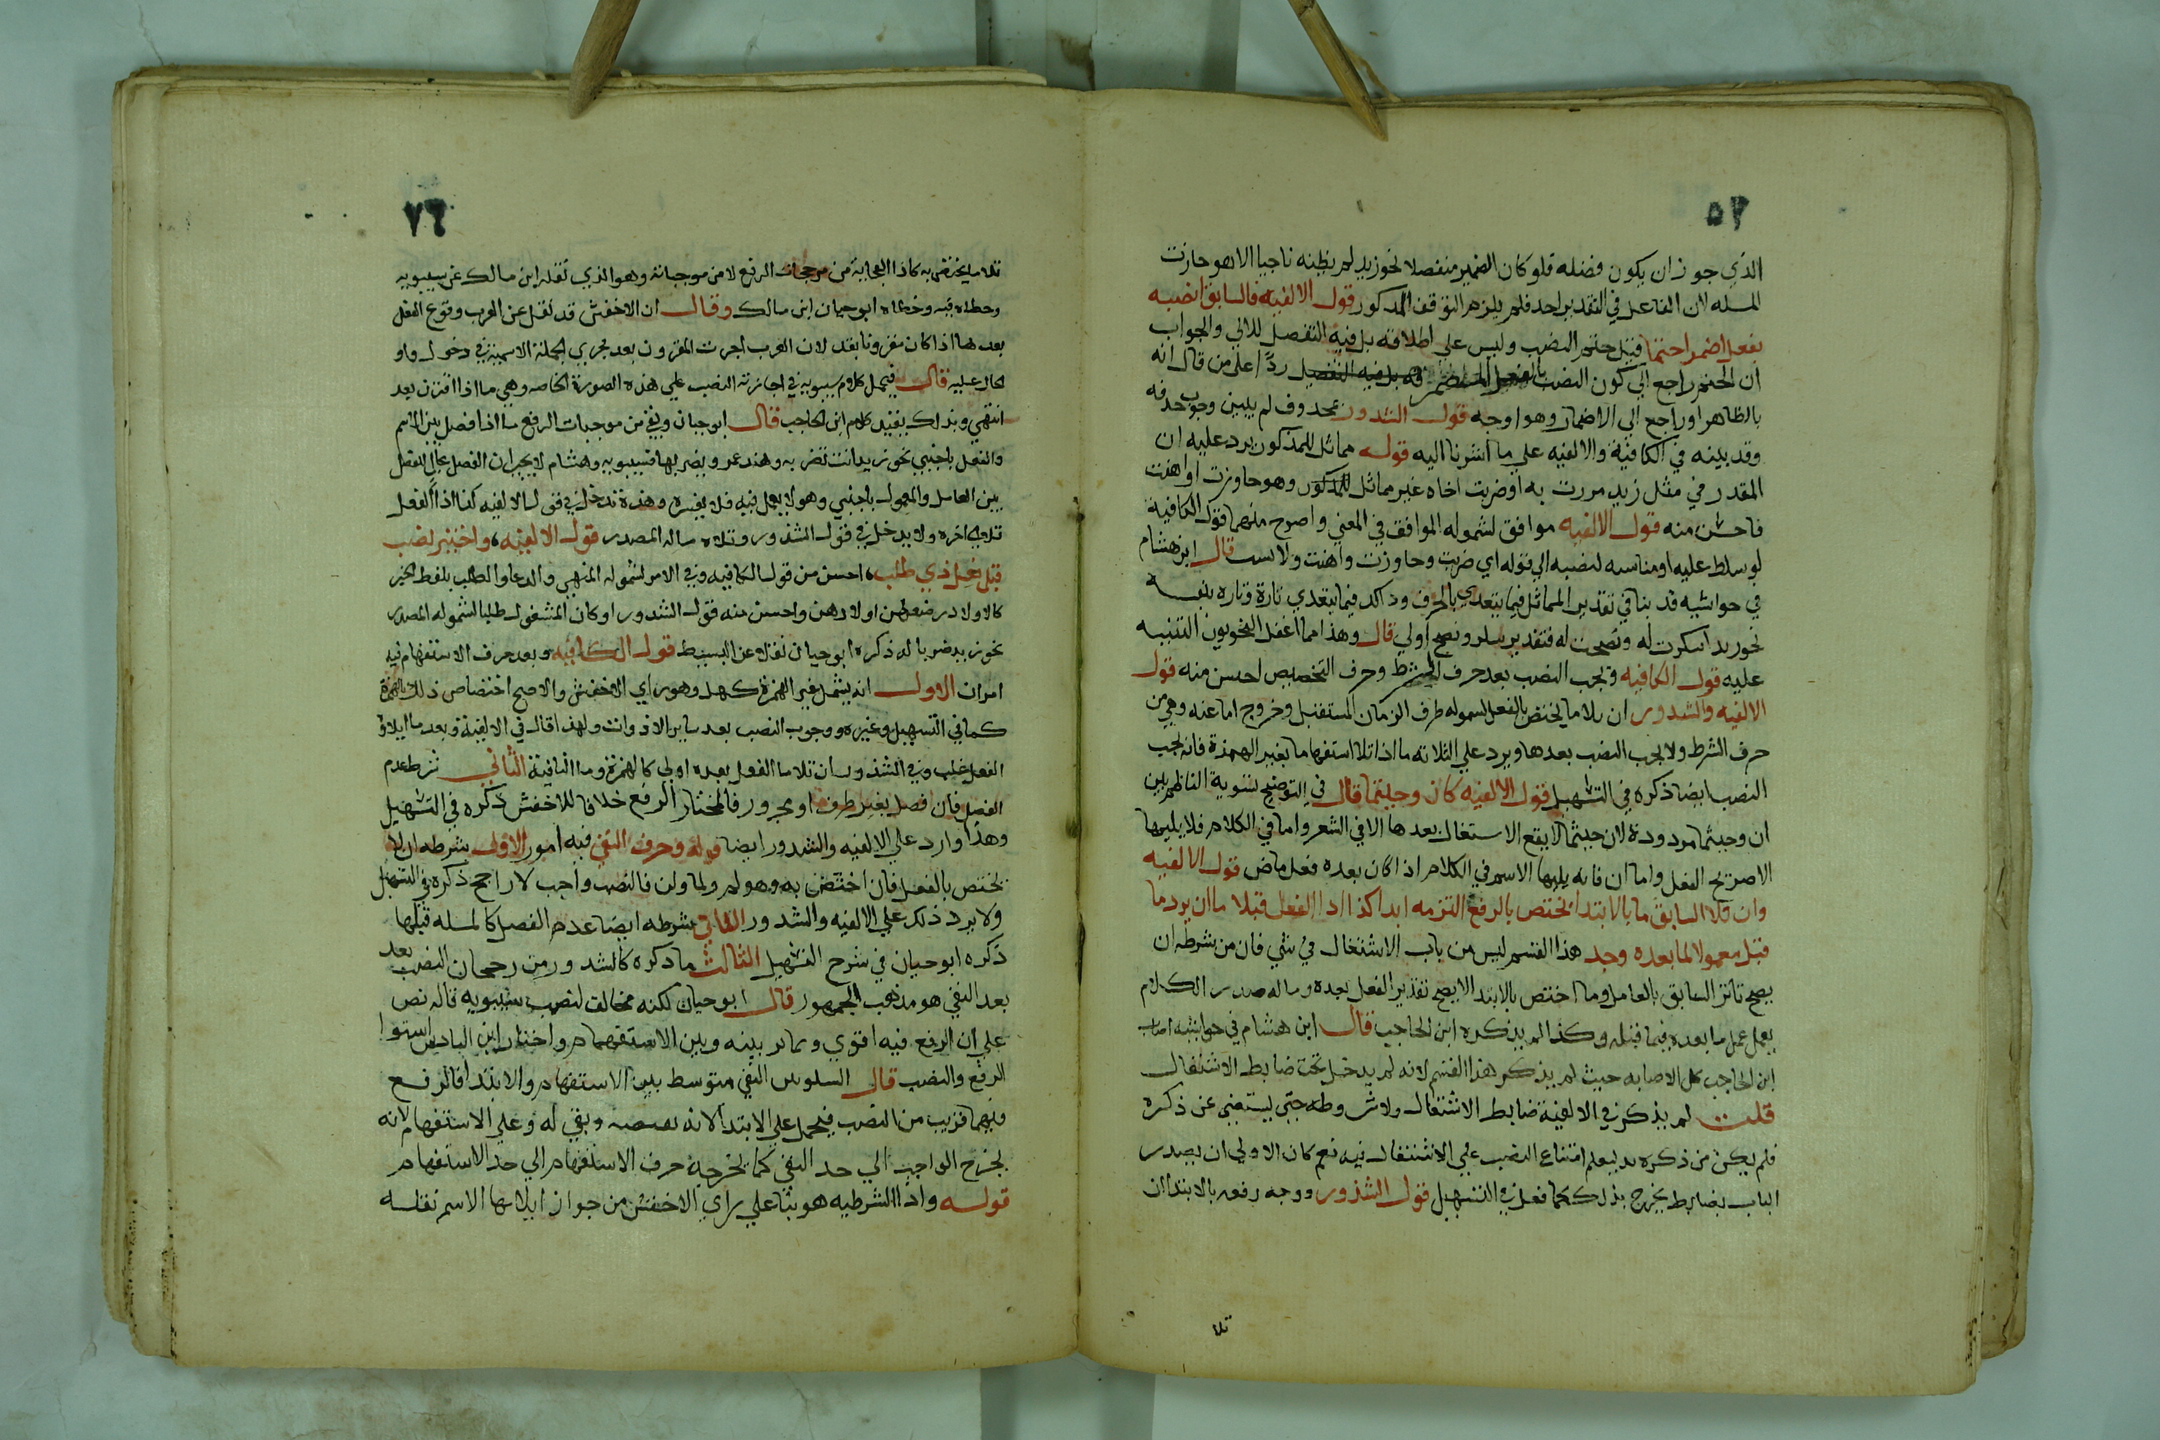 ٥٣
الذي جوزان يكون فضله فلو كان الضمير منفصلا نحو زيد لم يظنه ناجيا الا هو جازت
المسله لان الفاعل في التقدير احد فلم يلزم التوقف المذكور قول الالفيه فالسابق انصبه
بفعل اضمر احتما قيل حتم النصب وليس علي اطلاقه بل فيه التفصيل للاتي والجواب
ان الحتم راجع الي كون النصب بالفعل المضمر ردا علي من قال انه
بالظاهر او راجع الي الاضمار وهو اوجه قول الشذور محذوف لم يبين وجوب حذفه
وقد بينه في الكافية والالفيه علي ما اشرنا اليه قوله مماثل للمذكور يرد عليه ان
المقدر في مثل زيد مررت به او ضربت اخاه غير مماثل للمذكور وهو جاوزت او اهنت
فاحسن منه قول الالفيه موافق لشموله الموافق في المعني واصرح منهما قول الكافية
لو سلط عليه او مناسبه لنصبه الي قوله اي ضربت وجاوزت واهنت ولابست قال ابن هشام
في حواشيه قد بنا في تقدير المماثل فيما يتعدي بالحرف وذاك فيما يتعدي تارة وتاره بنفسه
نحو زيد اشكرت له ونصحت له فتقدير شكر ونصح اولي قال وهذا مما اغفل النحويون التنبيه
عليه قول الكافيه وتجب النصب بعد حرف الشرط وحرف التخصيص احسن منه قول
الالفيه والشذور ان تلا ما يختص بالفعل لشموله ظرف الزمان المستقبل وخروج اما عنه وهي من
حرف الشرط ولا يجب النصب بعدها ويرد علي الثلاثه ما اذا تلا استفهاما بغير الهمزة فانه يجب
النصب ايضا ذكره في التسهيل قول الالفيه كان وحيثما قال في التوضيح تسوية الناظم بين
ان وحيثما مردودة لان حيثما لا يقع الاستغال بعدها الا في الشعر واما في الكلام فلا يليها
الا صريح الفعل واما ان فانه يليها الاسم في الكلام اذا كان بعده فعل ماض قول الالفيه
وان تلا السابق ما بالابتدا يختص بالرفع التزمه ابدا كذا اذا الفعل تلا ما ان يرد ما
قبل معمولا لما بعده وجد هذا القسم ليس من باب الاشتغال في شي فان من شرطه ان
يصح تاثر السابق بالعامل وما اختص بالابتدا لا يصح تقدير الفعل بعده وما له صدر الكلام
يعمل عمل ما بعده فيما قبله وكذا لم يذكره ابن الحاجب قال ابن هشام في حواشيه اصاب
ابن الحاجب كل الاصابه حيث لم يذكر هذا القسم لانه لم يدخل تحت ضابط الاشتغال
قلت لم يذكر في الالفية ضابط الاشتغال ولا شروطه حتي يستغني عن ذكره
فلم يكن من ذكره بد ليعلم امتناع النصب علي الاشتغال فيه نعم كان الاولي ان يصدر
الباب بضابط يخرج بذلك كما فعل في التسهيل قول الشذور ووجه رفعه بالابتدا ان
تلا
٧٦
تلا ما يختص به كاذا الفجاية من موجبات الرفع لا من موجباته وهو الذي نقله ابن مالك عن سيبويه
وخطاه فيه وخطاه ابو حيان ابن مالك وقال ان الاخفش قد نقل عن العرب وقوع الفعل
بعدها اذا كان مقرونا بقد لان العرب اجرت المقرون بعد مجري الجملة الاسمية في دخول واو
الحال عليه قال فيحمل كلام سيبويه في اجازته النصب علي هذه الصورة الخاصه وهي ما اذا اقترن بعد
انتهي وبذلك يقيد كلام ابن الحاجب قال ابو حيان وبقي من موجبات الرفع ما اذا فصل بين الاسم
والفعل باجنبي نحو زيد انت تضربه وهند عمرو يضربها فسيبويه وهشام لا يجيزان الفصل
بين العامل والمعمول باجنبي وهو لا يعمل فيه فلا يفسره وهذه تدخل في قول الالفيه كذا اذا الفعل
تلا الي اخره ولا يدخل في قول الشذور وتلاه ماله المصدر قول الالفيه واختير نصب
قبل فعل ذي طلب احسن من قول الكافيه وفي الامر لشموله المنهي والدعا والطلب بلفظ الخبر
كالاولاد يرضعهن اولادهن واحسن منه قول الشذور او كان المشغول طلبا لشموله المصدر
نحو زيد ضربا له ذكره ابو حيان نقلا عن البسيط قول الكافيه وبعد حرف الاستفهام فيه
امران الاول انه يشمل غير الهمزة كهل وهو راي الاخفش والاصح اختصاص ذلك بالهمزة
كما في التسهيل وغيره ووجوب النصب بعد ساير الادوات ولهذا قال في الالفية وبعد ما ايلاؤ
الفعل غلب وفي الشذور ان تلا ما الفعل بعده اولي كالهمزة وما النافية الثاني شرط عدم
الفصل فان فصل بغير ظرف او مجرور فالمختار الرفع خلافا للاخفش ذكره في التسهيل
وهذا وارد علي الالفيه والشذور ايضا قوله وحرف النفي فيه امور الاولي شرطه ان لا
يختص بالفعل فان اختص به وهو لم ولما ولن فالنصب واجب لا راجح ذكره في التسهيل
ولا يرد ذلك علي الالفيه والشذور الثاني شرطه ايضا عدم الفصل كالمسله قبلها
ذكره ابو حيان في شرح التسهيل الثالث ما ذكره كالشذور من رجحان النصب بعد
بعد النفي هو مذهب الجمهور قال ابو حيان لكنه مخالف لنصب سيبويه قاله نص
علي ان الرفع فيه اقوي وغاير بينه وبين الاستفهام واختار ابن الباذش استوا
الرفع والنصب قال السلوبين النفي متوسط بين الاستفهام والابتدا فالرفع
وبهما قريب من النصب فيحمل علي الابتدا لانه نقيضه ونفي له وعلي الاستفهام لانه
يخرج الواجب الي حد النفي كما يخرجه حرف الاستفهام الي حد الاستفهام
قوله واذا الشرطيه هو بنا علي راي الاخفش من جواز ايلائها الاسم نقله